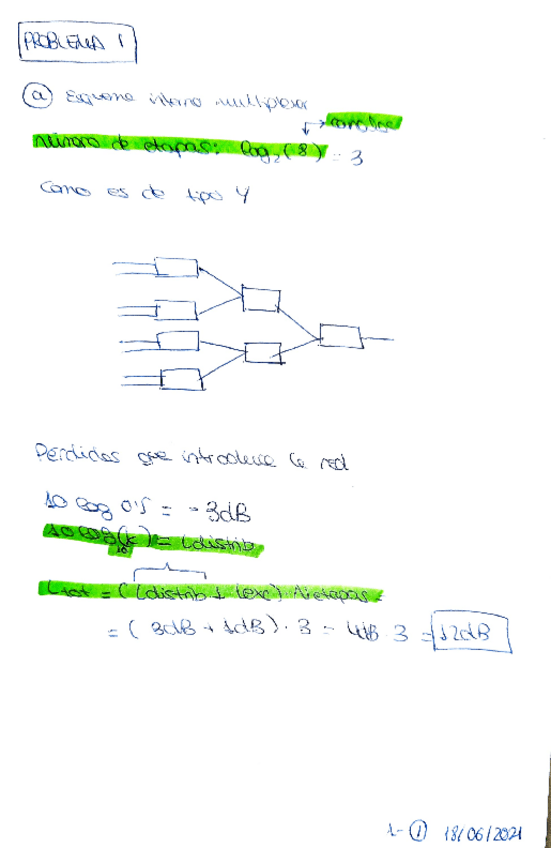 PROBLEMA 1
(a) Esquema interno multiplexor
→ canales
número de etapas: log₂(8) = 3
Como es de tipo Y
Pérdidas que introduce la red
10 log 0'5 = -3dB
10 log₁₀(k) = Ldistrib
Ltot = (Ldistrib + Lexc) · Netapas =
= (3dB + 1dB) · 3 = 4dB · 3 = 12dB
1- (1) 18/06/2021